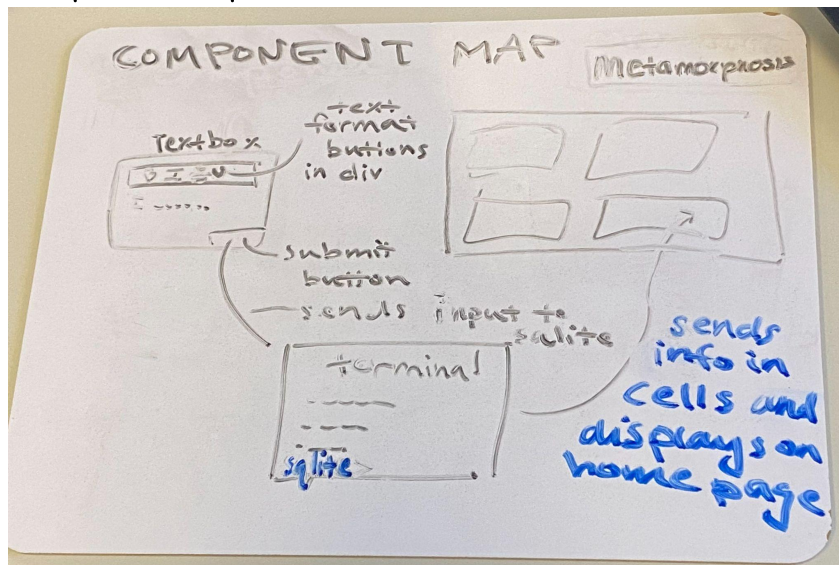 COMPONENT MAP
Metamorphosis
Textbox
text
format
buttons
in div
submit
button
sends input to
sqlite
terminal
sqlite
sends
info in
cells and
displays on
home page